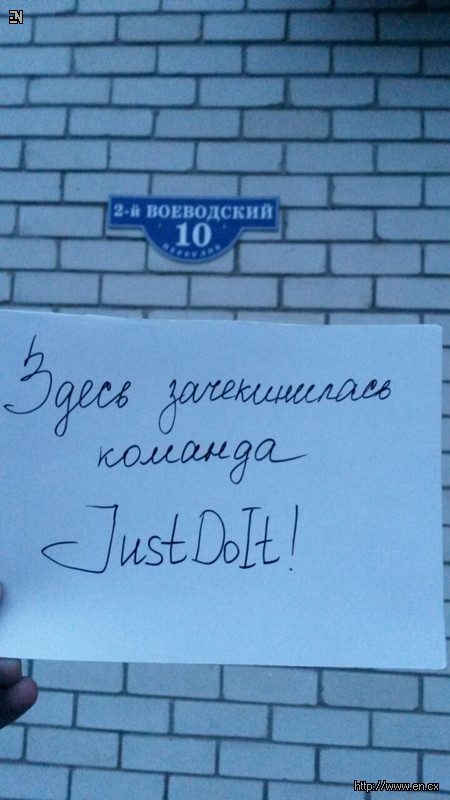 EN
2-й ВОЕВОДСКИЙ
10
ПЕРЕУЛОК
Здесь зачекинилась
команда
JustDoIt!
http://www.en.cx